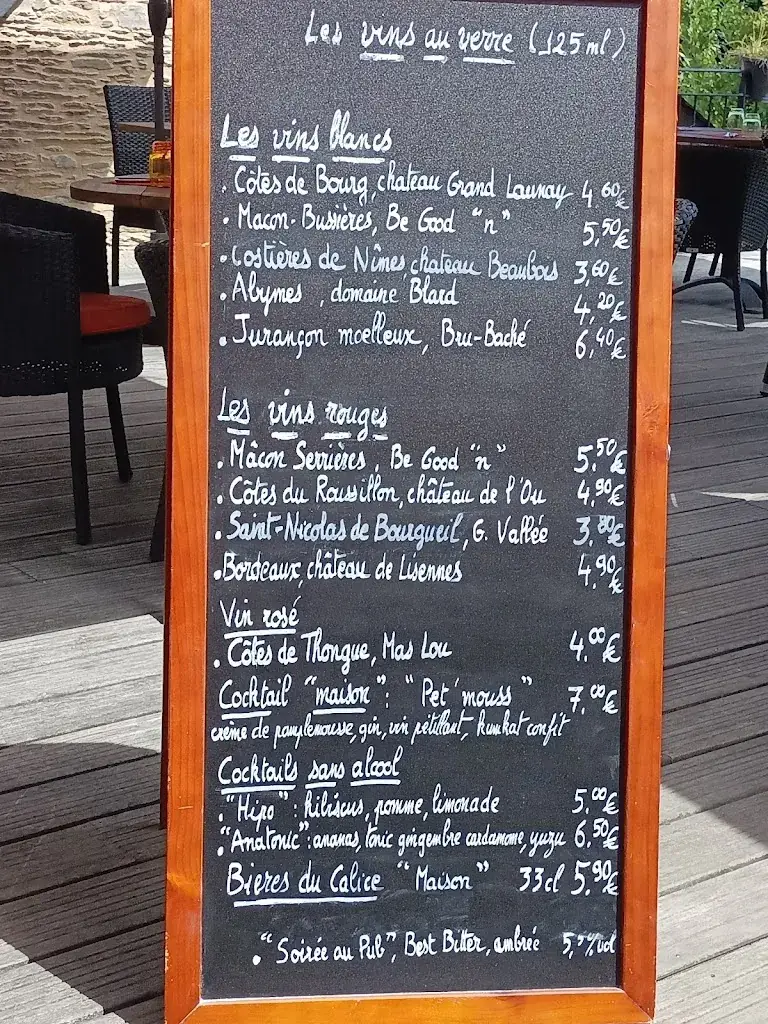 Les vins au verre (125ml)
Les vins blancs
. Côtes de Bourg, chateau Grand Launay 4,60€
. Macon-Bussières, Be Good "n" 5,50€
. Costières de Nîmes chateau Beaubois 3,60€
. Abymes, domaine Blard 4,20€
. Jurançon moelleux, Bru-Baché 6,40€
Les vins rouges
. Mâcon Serrières, Be Good "n" 5,50€
. Côtes du Roussillon, château de l'Ou 4,90€
. Saint-Nicolas de Bourgueil, G. Vallée 3,80€
. Bordeaux, château de Lisennes 4,90€
Vin rosé
. Côtes de Thongue, Mas Lou 4,00€
Cocktail "maison": "Pet'mouss" 7,00€
crème de pamplemousse, gin, vin pétillant, kumkat confit
Cocktails sans alcool
. "Hipo": hibiscus, pomme, limonade 5,00€
. "Anatonic": ananas, tonic gingembre cardamome, yuzu 6,50€
Bières du Calice "Maison" 33cl 5,90€
. "Soirée au Pub", Best Bitter, ambrée 5,5%vol